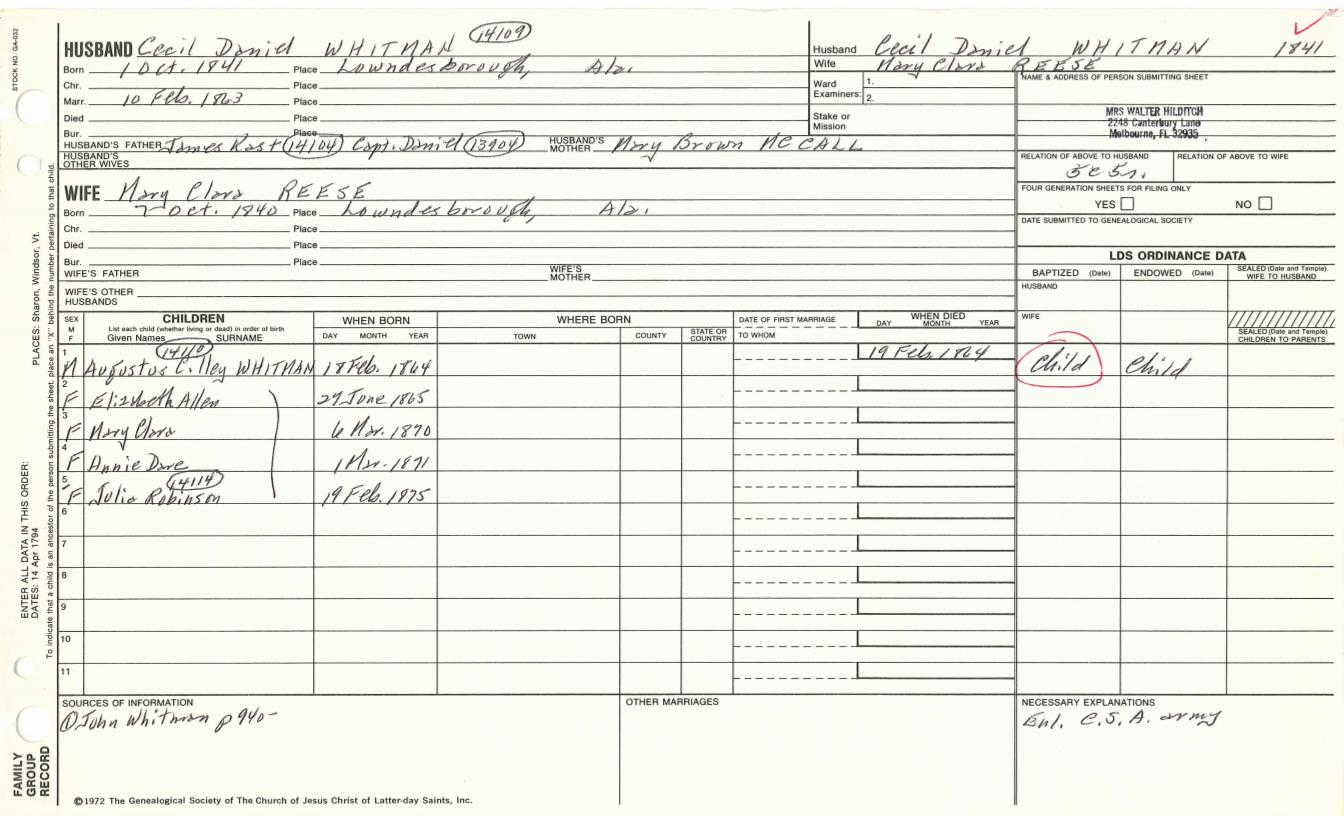 STOCK NO. GA-032
HUSBAND Cecil Daniel WHITMAN 14109
Born 1 Oct. 1841 Place Lowndesborough, Ala.
Chr. Place
Marr. 10 Feb. 1863 Place
Died Place
Bur. Place
HUSBAND'S FATHER James 14104 Capt. Daniel 13904 HUSBAND'S MOTHER Mary Brown MCCALL
HUSBAND'S OTHER WIVES
Husband Cecil Daniel WHITMAN 1841
Wife Mary Clara REESE
Ward Examiners: 1.
2.
Stake or Mission
NAME & ADDRESS OF PERSON SUBMITTING SHEET
MRS WALTER HILDITCH
2248 Canterbury Lane
Melbourne, FL 32935
RELATION OF ABOVE TO HUSBAND RELATION OF ABOVE TO WIFE
FOUR GENERATION SHEETS FOR FILING ONLY
YES NO
DATE SUBMITTED TO GENEALOGICAL SOCIETY
WIFE Mary Clara REESE
Born 7 Oct. 1840 Place Lowndesborough, Ala.
Chr. Place
Died Place
Bur. Place
WIFE'S FATHER WIFE'S MOTHER
WIFE'S OTHER HUSBANDS
LDS ORDINANCE DATA
BAPTIZED (Date) ENDOWED (Date) SEALED (Date and Temple) WIFE TO HUSBAND
HUSBAND
WIFE
SEALED (Date and Temple) CHILDREN TO PARENTS
SEX M F CHILDREN WHEN BORN WHERE BORN DATE OF FIRST MARRIAGE WHEN DIED
List each child (whether living or dead) in order of birth
Given Names SURNAME DAY MONTH YEAR TOWN COUNTY STATE OR COUNTRY TO WHOM DAY MONTH YEAR
1 M Augustus C. lley WHITMAN 14110 18 Feb. 1864 19 Feb. 1864 Child Child
2 F Elizabeth Allen 29 June 1865
3 F Mary Clara 6 Mar. 1870
4 F Annie Dare 1 Mar. 1871
5 F Julia Robinson 14114 19 Feb. 1875
6
7
8
9
10
11
SOURCES OF INFORMATION OTHER MARRIAGES NECESSARY EXPLANATIONS
① John Whitman p 940- Enl. C.S.A. army
©1972 The Genealogical Society of The Church of Jesus Christ of Latter-day Saints, Inc.
FAMILY GROUP RECORD
ENTER ALL DATA IN THIS ORDER:
DATES: 14 Apr 1794
PLACES: Sharon, Windsor, Vt.
To indicate that a child is an ancestor of the person submitting the sheet, place an "X" behind the number pertaining to that child.